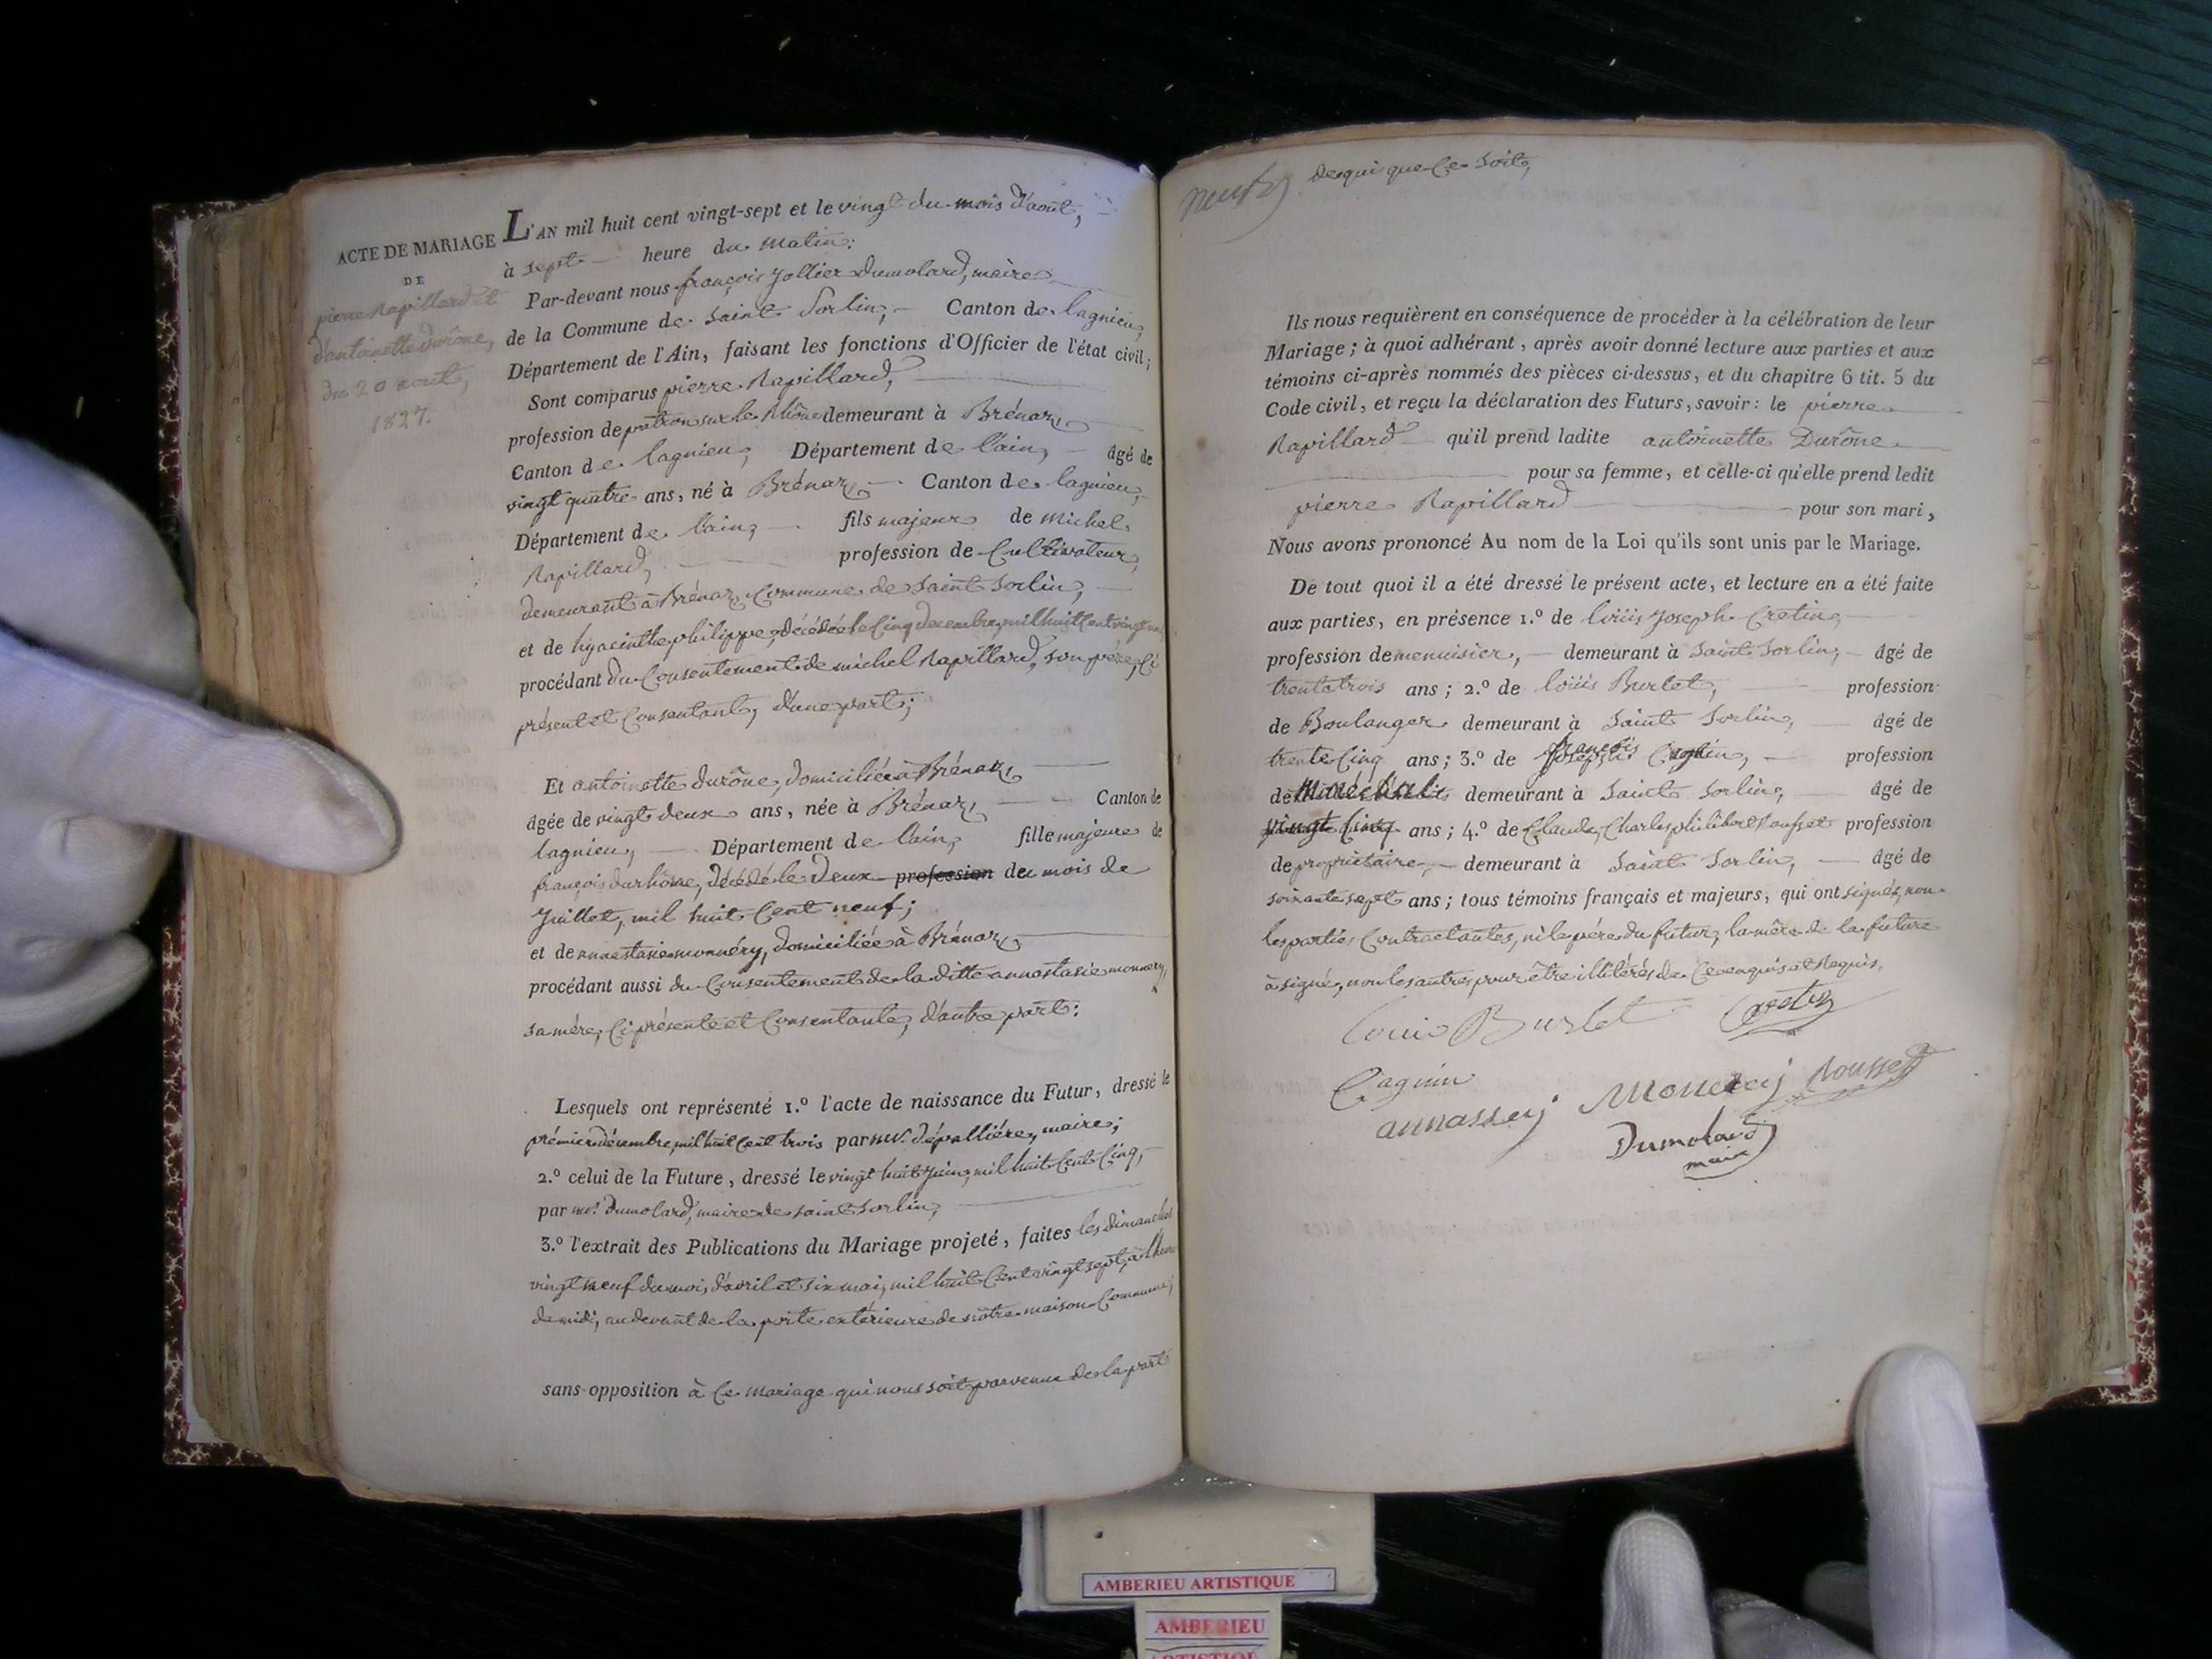 ACTE DE MARIAGE
DE
pierre Rapillard et
d'antoinette durône,
du 20 aout,
1827.
L'AN mil huit cent vingt-sept et le vingt du mois d'aout,
à sept heure du matin:
Par-devant nous françois Jollier Dumolard, maire
de la Commune de Saint Sorlin, Canton de lagnieu,
Département de l'Ain, faisant les fonctions d'Officier de l'état civil;
Sont comparus pierre Rapillard,
profession de patron sur le Rhône demeurant à Brénaz,
Canton de lagnieu, Département de l'ain, âgé de
vingt quatre ans, né à Brénaz, Canton de lagnieu,
Département de l'ain, fils majeur de michel
Rapillard, profession de Cultivateur,
demeurant à Brénaz, Commune de Saint Sorlin,
et de hyacinthe philippe, décédée le Cinq decembre, mil huit Cent vingt
procédant du Consentement de michel Rapillard, son père, Ci
présent et Consentant, d'une part;
Et antoinette durône, domiciliée à Brénaz,
âgée de vingt deux ans, née à Brénaz, Canton de
lagnieu, Département de l'ain, fille majeure de
françois durhône, décédé le Deux profession du mois de
Juillet, mil huit Cent neuf;
et de annastasie monnéry, domiciliée à Brénaz,
procédant aussi du Consentement de la ditte annastasie monnery,
sa mére, Ci présente et Consentante, d'autre part:
Lesquels ont représenté 1.º l'acte de naissance du Futur, dressé le
prémier décembre, mil huit Cent trois par mr. dépallière, maire;
2.º celui de la Future, dressé le vingt huit Juin, mil huit Cent Cinq,
par mr. Dumolard, maire de saint Sorlin,
3.º l'extrait des Publications du Mariage projeté, faites les dimanches
vingt neuf du mois d'avril et six mai, mil huit Cent vingt sept, à l'heure
de midi, au devant de la porte extérieure de nôtre maison Commune,
sans opposition à Ce mariage qui nous soit parvenue de la part
de qui que Ce soit,
Ils nous requièrent en conséquence de procéder à la célébration de leur
Mariage; à quoi adhérant, après avoir donné lecture aux parties et aux
témoins ci-après nommés des pièces ci-dessus, et du chapitre 6 tit. 5 du
Code civil, et reçu la déclaration des Futurs, savoir: le pierre
Rapillard qu'il prend ladite antoinette Durône
pour sa femme, et celle-ci qu'elle prend ledit
pierre Rapillard pour son mari,
Nous avons prononcé Au nom de la Loi qu'ils sont unis par le Mariage.
De tout quoi il a été dressé le présent acte, et lecture en a été faite
aux parties, en présence 1.º de loüis Joseph Cretin,
profession de menuisier, demeurant à Saint Sorlin, âgé de
trente trois ans; 2.º de loüis Burlet, profession
de Boulanger demeurant à Saint Sorlin, âgé de
trente Cinq ans; 3.º de françois Cagnin, profession
de Maréchal demeurant à Saint Sorlin, âgé de
vingt Cinq ans; 4.º de Claude, Charles philibert Rousset profession
de propriétaire, demeurant à Saint Sorlin, âgé de
soixante sept ans; tous témoins français et majeurs, qui ont signés, non
les parties Contractantes, ni le pére du futur, la mêre de la future
à signé, non les autres pour être illitérés de Ce enquis et Requis.
Louis Burlet Cretin
Cagnin
annassey Monerey Rousset
Dumolard
maire
AMBERIEU ARTISTIQUE
AMBERIEU
ARTISTIQUE